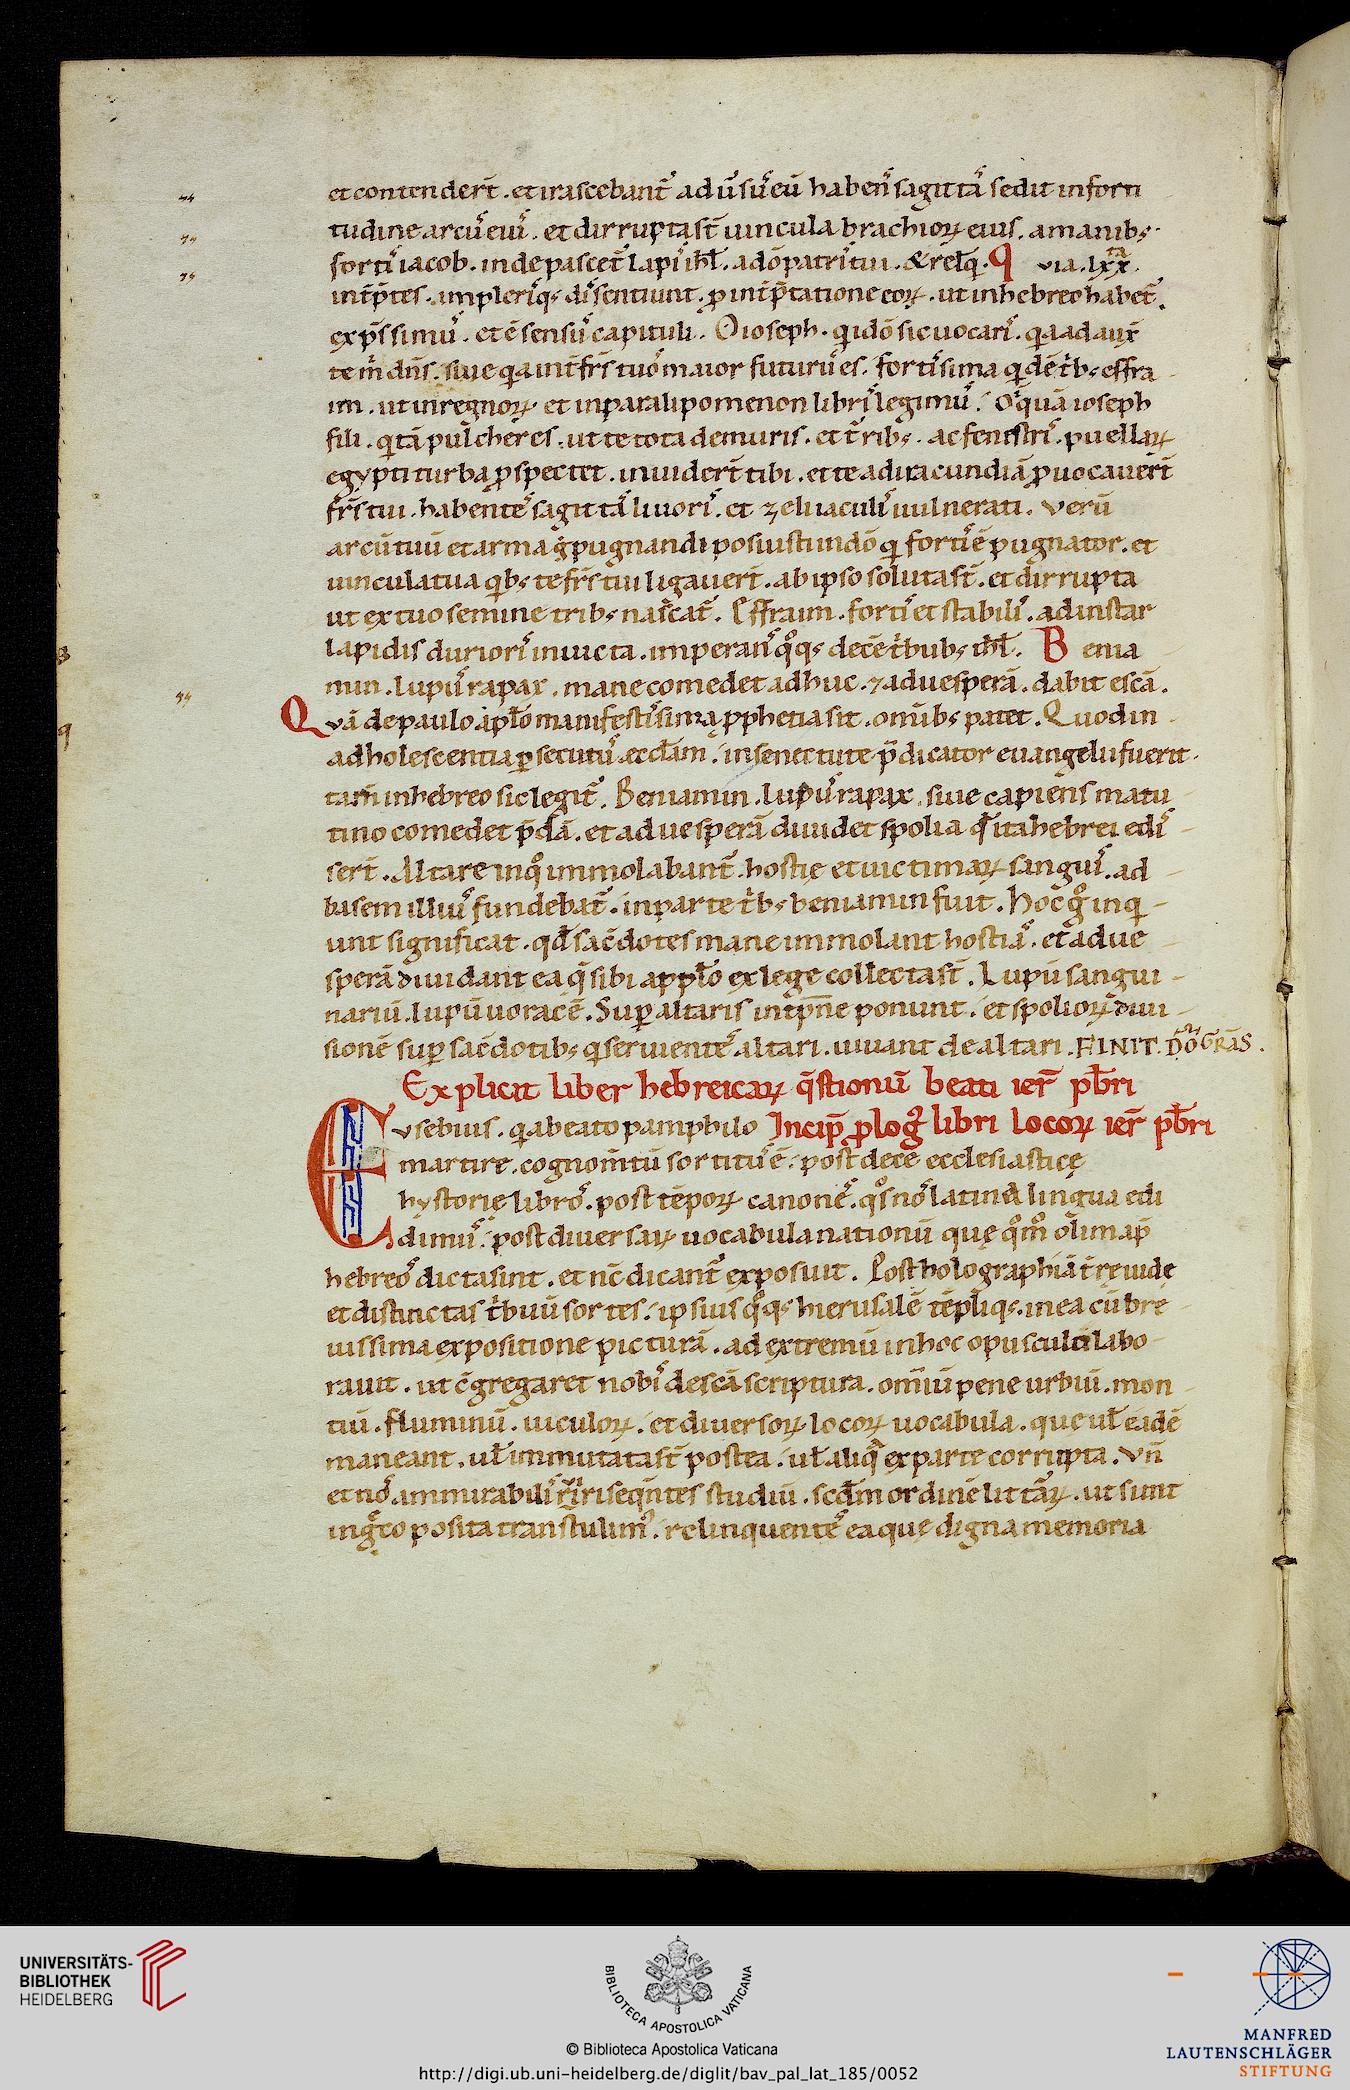 et contendert̄. et irascebant᷒ adũsũ eũ haben᷒ sagittã᷒ sedit inforti
tudine arcũ eiũ. et dirrupta st̄ uincula brachioꝝ eius. amanib;.
forti᷒ iacob. inde pascet᷒ lapi᷒ ihl̄. adõ patri᷒ tui. & relq̄. Q via .lxx.
int̄p̄tes. inpleri᷒q; di᷒sentiunt. ꝓ int̄p̄tatione eoꝝ. ut inhebreo habet᷒.
exp̄ssimu᷒. et ē sensu᷒ capituli. O ioseph. qidō sic uocari᷒. qa adaux̄
te m̄ dn̄s. siue qa int̄ fr̄s tuo᷒ maior futuru᷒ es. forti᷒sima qdē t̄b; effra
im. ut inregnoꝝ et inparalipomenon libri᷒ legimu᷒. O inquā ioseph
fili. q tā pulcher es. ut te tota demuris. et t̄rib;. ac fenestri᷒. puellaꝝ
egypti turba ꝓspectet. inuidert̄ tibi. et te adiracundiā ꝓuocauert̄
fr̄s tui. habente᷒ sagittā᷒ liuori᷒. et zeli iaculi᷒ uulnerati. Verū
arcū tuū et arma ḡ pugnandi posuisti indō q forti᷒ ē pugnator. et
uincula tua qb; te fr̄s tui ligauert̄. ab ipso soluta st̄. et dirrupta
ut ex tuo semine trib; nascat᷒. Effraim. forti᷒ et stabili᷒. ad instar
lapidis duriori᷒ inuicta. imperan᷒ qoq; decē t̄bub; ihl̄. B enia
min. lupu᷒ rapax. mane comedet adhuc. ⁊ aduesperā. dabit escā.
Qvā depaulo aplo manifesti᷒sima ꝓphetia sit. omib; patet. Quod in
adholescentia ꝑsecutu᷒ eccl̄am. insenectute p̄dicator euangelii fuerit.
tam̄ inhebreo sic legit᷒. Beniamin. lupu᷒ rapax. siue capiens matu
tino comedet p̄dā. et aduesperā diuidet spolia qd̄ ita hebrei edi᷒
sert̄. Altare inqo immolabant᷒. hostię et uictimaꝝ sangui᷒. ad
basem illiu᷒ fundebat᷒. inparte t̄b; beniamin fuit. Hoc ḡ inq
unt significat. qd̄ sac̄dotes mane immolant hostiā᷒. et adue
sperā diuidant ea q̄ sibi appl̄o ex lege collecta st̄. Lupū sangui
nariū. lupū uoracē. Suꝑ altaris int̄pn̄e ponunt. et spolioꝝ diui
sionē suꝑ sac̄dotib; q seruiente᷒ altari. uiuant de altari. FINIT. DŌ GRĀS.
Explicit liber hebreicaꝝ q̄stionū beati ier̄ pb̄ri
Evsebius. q abeato pamphilo Incip̄ ꝓlog᷒ libri locoꝝ ier̄ pb̄ri
martire. cognom̄tū sortitu᷒ ē. post decē ecclesiasticę
hystorię libro᷒. post tēpoꝝ canone᷒. qo᷒ no᷒ latina lingua edi
dimu᷒. post diuersaꝝ uocabula nationū quę qm̊ olim ap̄
hebreo᷒ dicta sint. et nc̄ dicant᷒ exposuit. Post holographiā t̄rę iudę
et distinctas t̄buū sortes. ipsius qoq; hierusalē tēpliq;. inea cū bre
uissima expositione picturā. ad extremū inhoc opusculo labo
rauit. ut c̄gregaret nobi᷒ de scā scriptura. om̄iū pene urbiū. mon
tiū. fluminū. uiculoꝝ. et diuersoꝝ locoꝝ uocabula. quę ul̄ eadē
maneant. ul̄ immutata st̄ postea. ul̄ aliq̄ ex parte corrupta. Vn̄
et no᷒ ammirabili᷒ uiri seqn̄tes studiū. scd̄m ordinē litt̄aꝝ. ut sunt
ingꝛ̄co posita transtulim᷒. relinquente᷒ ea quę digna memoria
UNIVERSITÄTS-
BIBLIOTHEK
HEIDELBERG
BIBLIOTECA APOSTOLICA VATICANA
© Biblioteca Apostolica Vaticana
http://digi.ub.uni-heidelberg.de/diglit/bav_pal_lat_185/0052
MANFRED
LAUTENSCHLÄGER
STIFTUNG